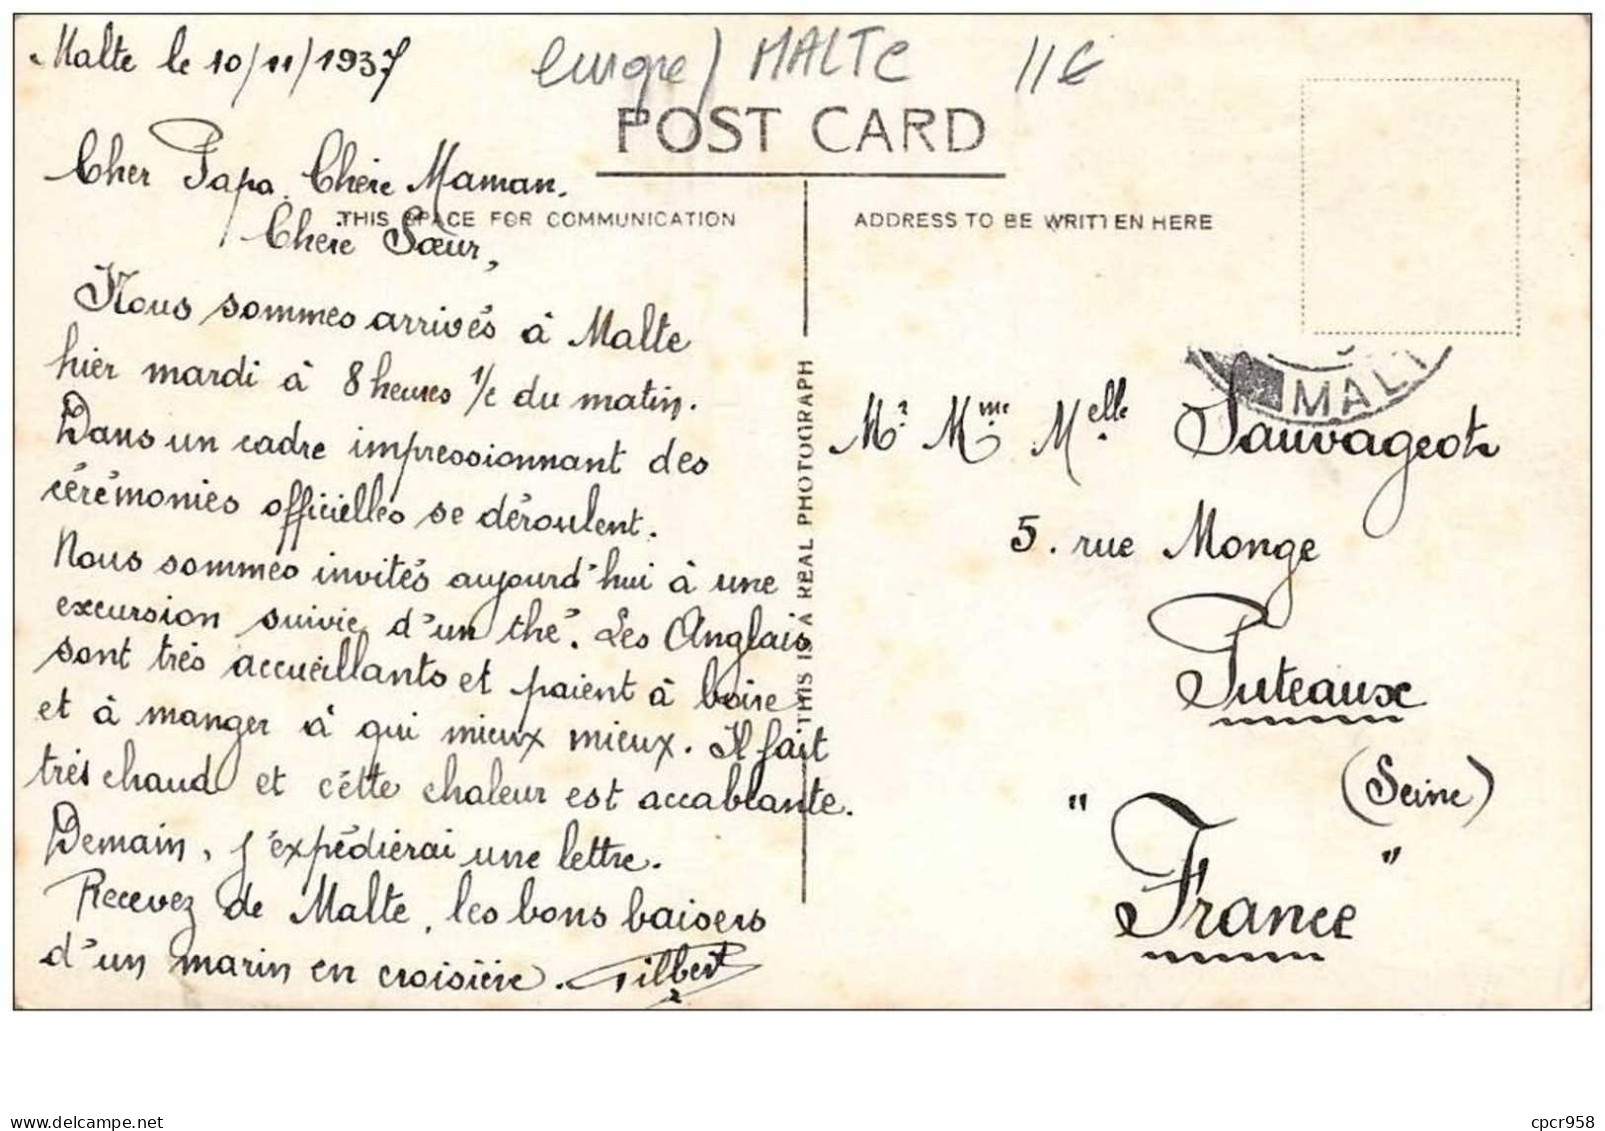 Malte le 10/11/1937
europe) MALTE 11€
POST CARD
Cher Papa. Chère Maman.
THIS SPACE FOR COMMUNICATION
ADDRESS TO BE WRITTEN HERE
Chère Sœur,
Nous sommes arrivés à Malte
hier mardi à 8 heures 1/2 du matin.
Dans un cadre impressionnant des
cérémonies officielles se déroulent.
Nous sommes invités aujourd'hui à une
excursion suivie d'un thé. Les Anglais
sont très accueillants et paient à boire
et à manger à qui mieux mieux. Il fait
très chaud et cette chaleur est accablante.
Demain, j'expédierai une lettre.
Recevez de Malte, les bons baisers
d'un marin en croisière. Gilbert
THIS IS A REAL PHOTOGRAPH
MALT
Mr Mme Melle Sauvageot
5. rue Monge
Puteaux
(Seine)
"France"
delcampe.net
cpcr958